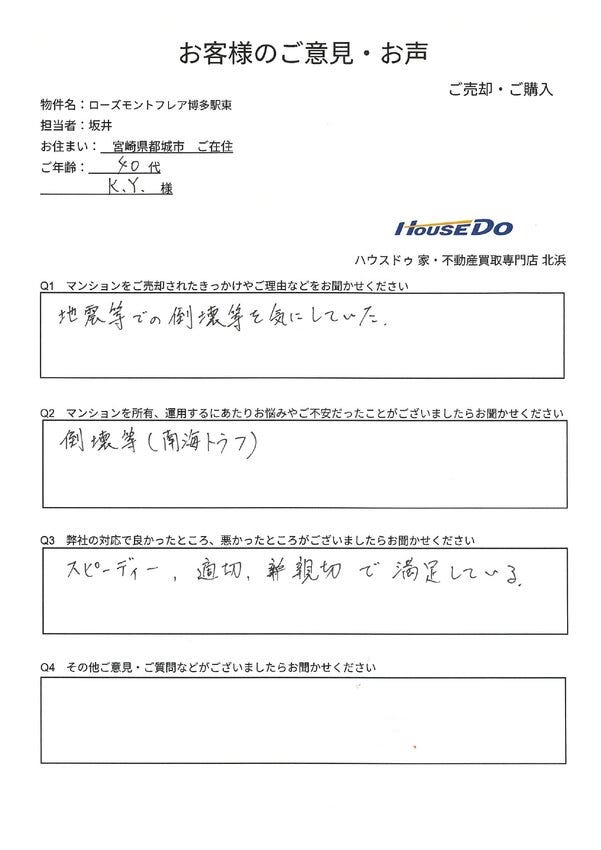 お客様のご意見・お声
ご売却・ご購入
物件名：ローズモントフレア博多駅東
担当者：坂井
お住まい： 宮崎県都城市 ご在住
ご年齢： 40 代
K.Y. 様
HOUSE DO
ハウスドゥ 家・不動産買取専門店 北浜
Q1 マンションをご売却されたきっかけやご理由などをお聞かせください
地震等での倒壊等を気にしていた.
Q2 マンションを所有、運用するにあたりお悩みやご不安だったことがございましたらお聞かせください
倒壊等(南海トラフ)
Q3 弊社の対応で良かったところ、悪かったところがございましたらお聞かせください
スピーディー, 適切, 親切で満足している.
Q4 その他ご意見・ご質問などがございましたらお聞かせください